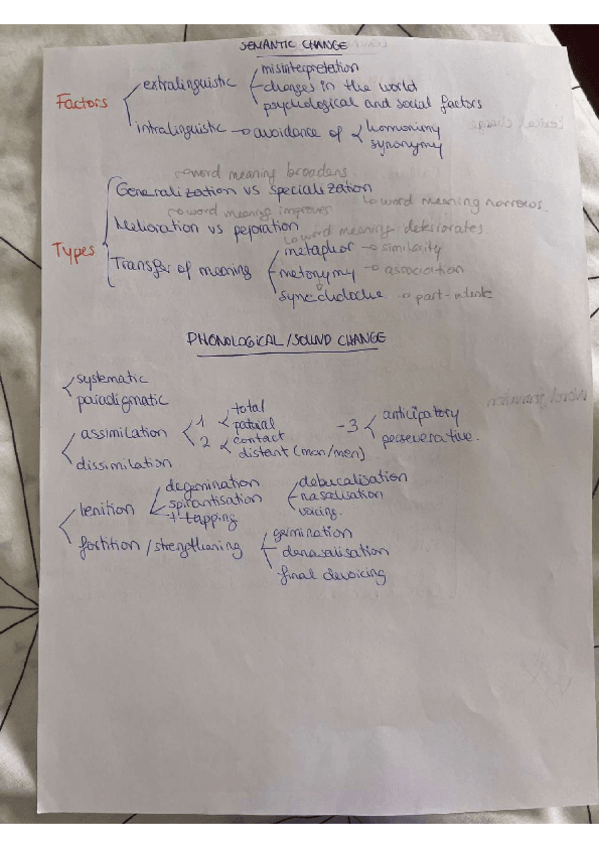 SEMANTIC CHANGE
Factors
extralinguistic
misinterpretation
changes in the world
psychological and social factors
intralinguistic → avoidance of
homonimy
synonymy
Types
→ word meaning broadens
Generalization vs Specialization
↳ word meaning narrows
→ word meaning improves
Melioration vs pejoration
↳ word meaning deteriorates
Transfer of meaning
metaphor → similarity
metonymy → association
synecdoche → part-
PHONOLOGICAL/SOUND CHANGE
systematic
paradigmatic
assimilation
1
total
2
contact
distant (man/men)
- 3
anticipatory
perseverative.
dissimilation
lenition
degemination
spirantisation
+ tapping
debucalisation
nasalisation
voicing.
fortition / strengthening
gemination
denasalisation
final devoicing